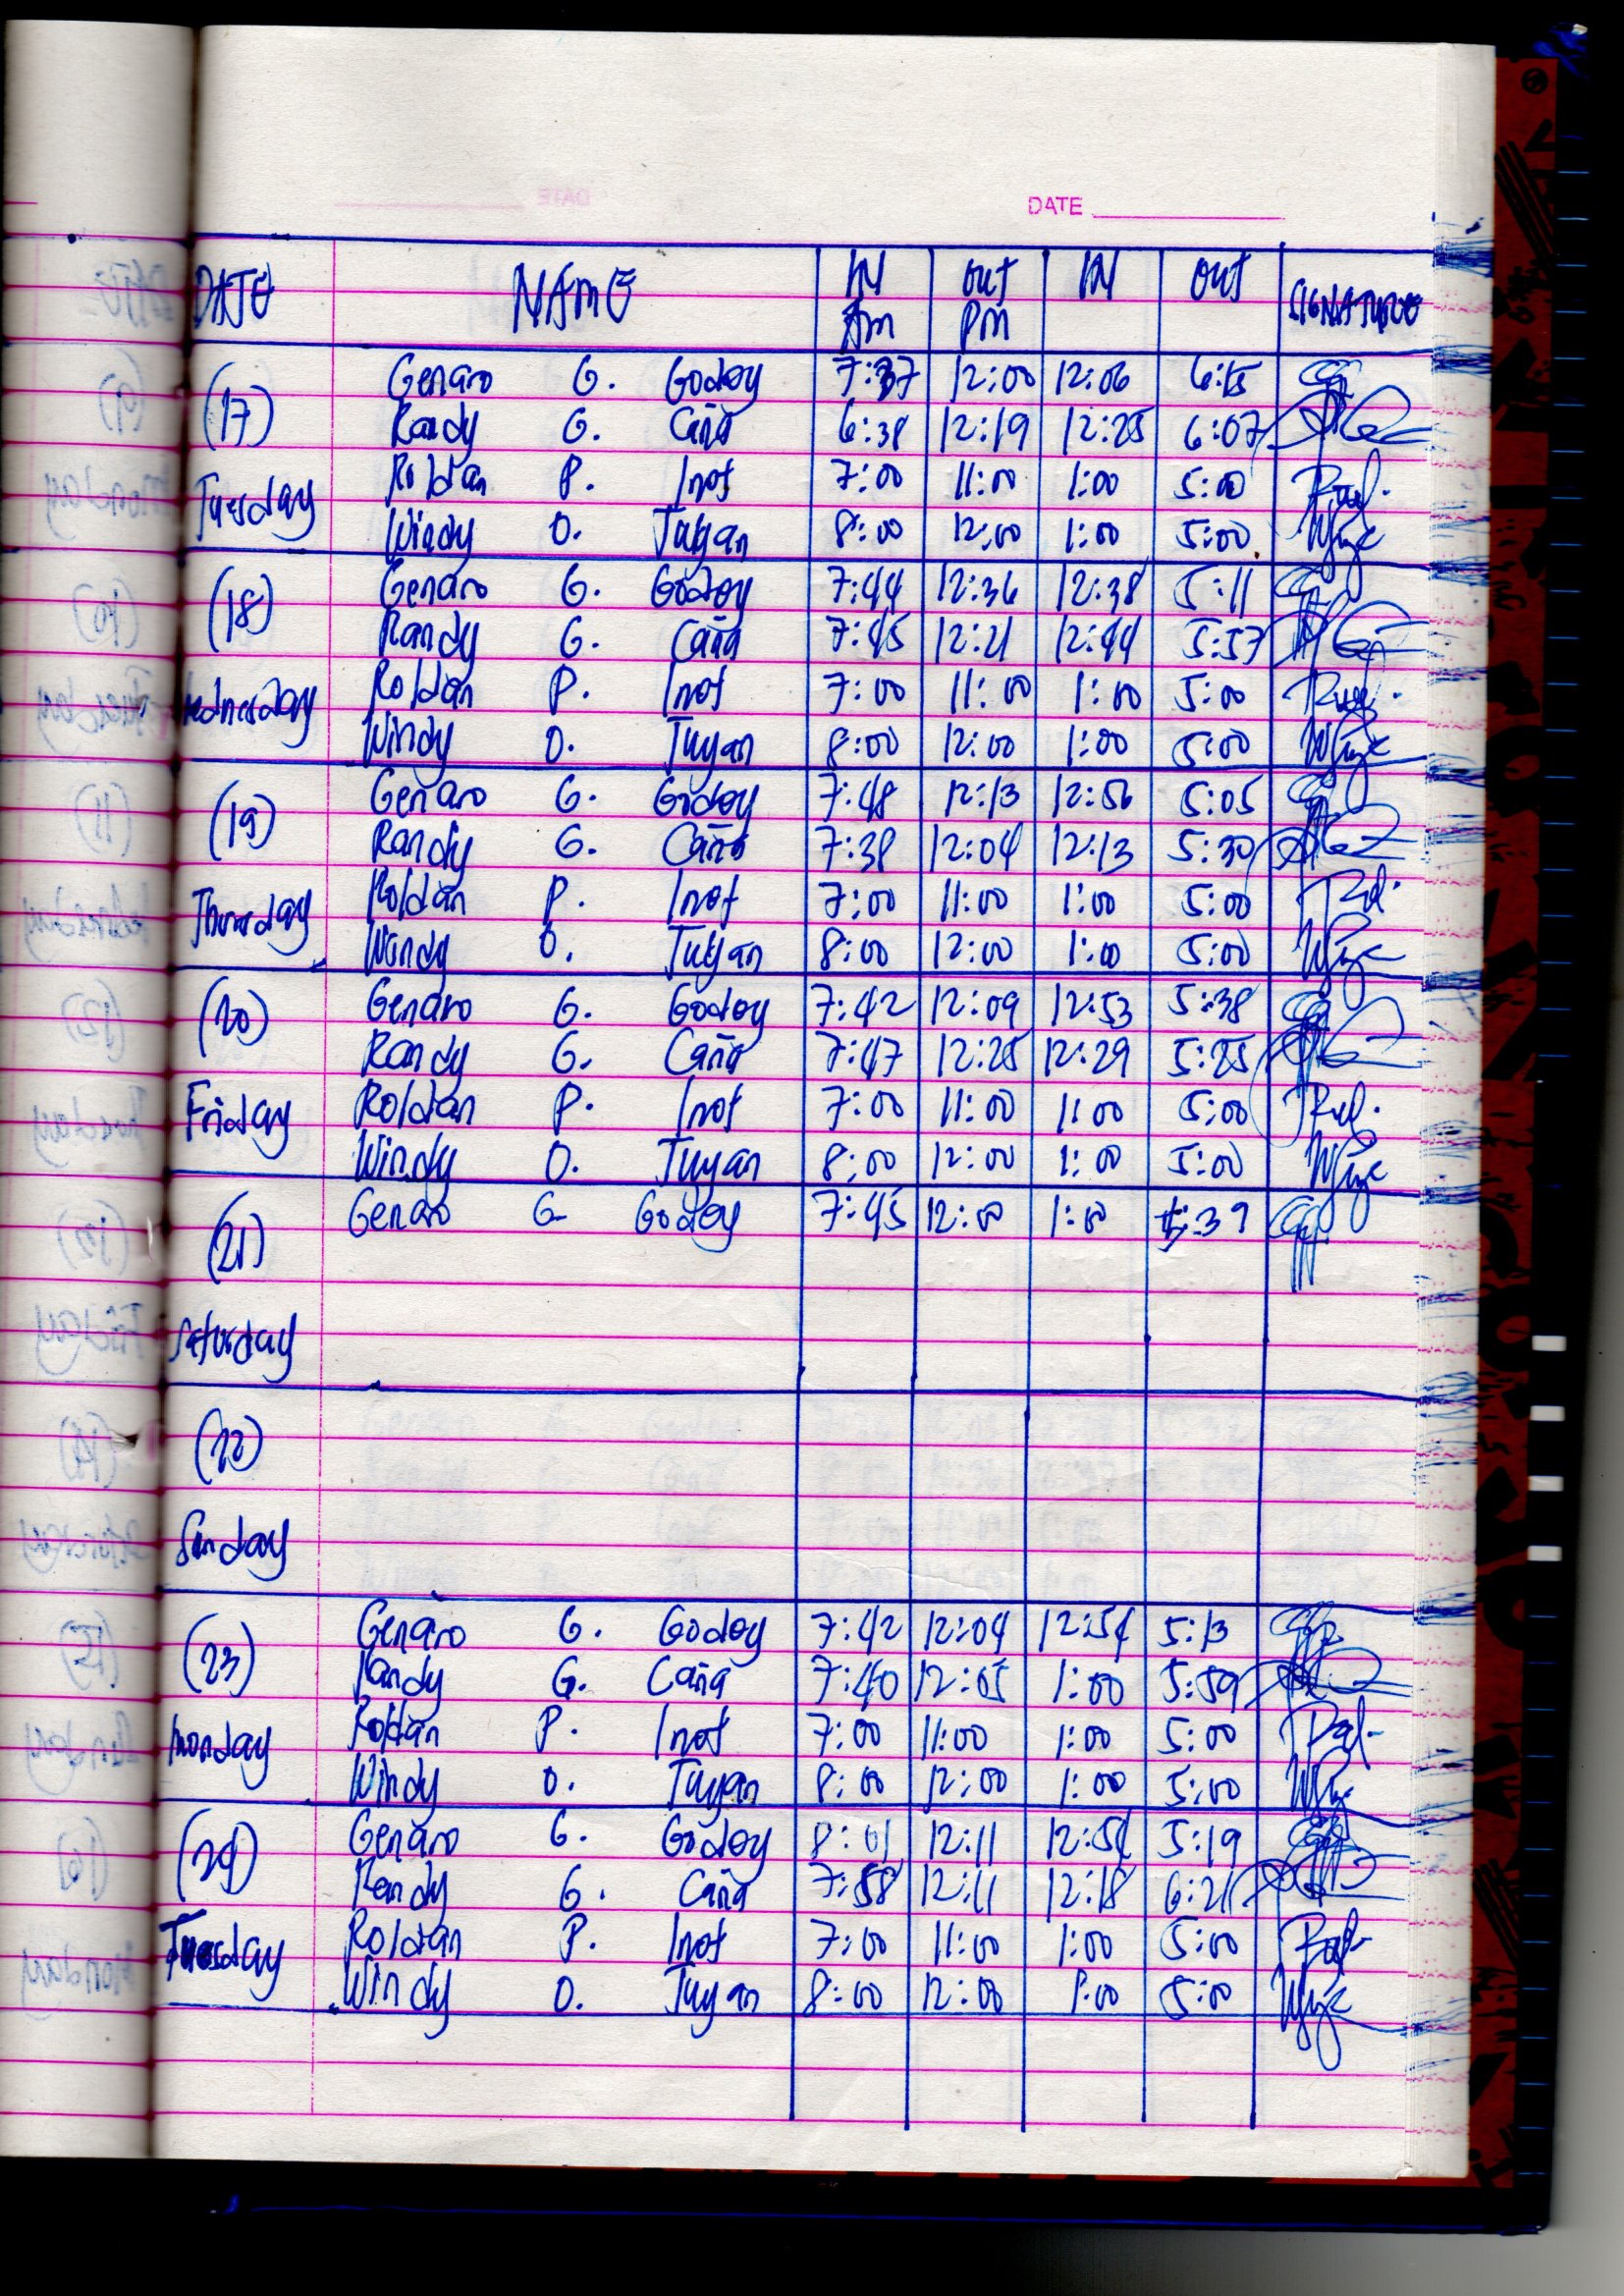 DATE
DATE NAME IN AM OUT PM IN OUT SIGNATURE
(17) Genaro G. Godoy 7:37 12:00 12:06 6:15
Randy G. Caña 6:38 12:19 12:25 6:07
Tuesday Roldan P. Inot 7:00 11:00 1:00 5:00
Windy O. Tuyan 8:00 12:00 1:00 5:00
(18) Genaro G. Godoy 7:44 12:36 12:38 5:11
Randy G. Caña 7:45 12:21 12:44 5:57
Wednesday Roldan P. Inot 7:00 11:00 1:00 5:00
Windy O. Tuyan 8:00 12:00 1:00 5:00
(19) Genaro G. Godoy 7:48 12:13 12:56 5:05
Randy G. Caña 7:38 12:04 12:13 5:30
Thursday Roldan P. Inot 7:00 11:00 1:00 5:00
Windy O. Tuyan 8:00 12:00 1:00 5:00
(20) Genaro G. Godoy 7:42 12:09 12:53 5:38
Randy G. Caña 7:47 12:25 12:29 5:25
Friday Roldan P. Inot 7:00 11:00 1:00 5:00
Windy O. Tuyan 8:00 12:00 1:00 5:00
(21) Genaro G Godoy 7:45 12:00 1:00 5:39
Saturday
(22)
Sunday
(23) Genaro G. Godoy 7:42 12:04 12:54 5:13
Randy G. Caña 7:40 12:05 1:00 5:59
Monday Roldan P. Inot 7:00 11:00 1:00 5:00
Windy O. Tuyan 8:00 12:00 1:00 5:00
(24) Genaro G. Godoy 8:01 12:11 12:54 5:19
Randy G. Caña 7:58 12:11 12:18 6:21
Tuesday Roldan P. Inot 7:00 11:00 1:00 5:00
Windy O. Tuyan 8:00 12:00 1:00 5:00